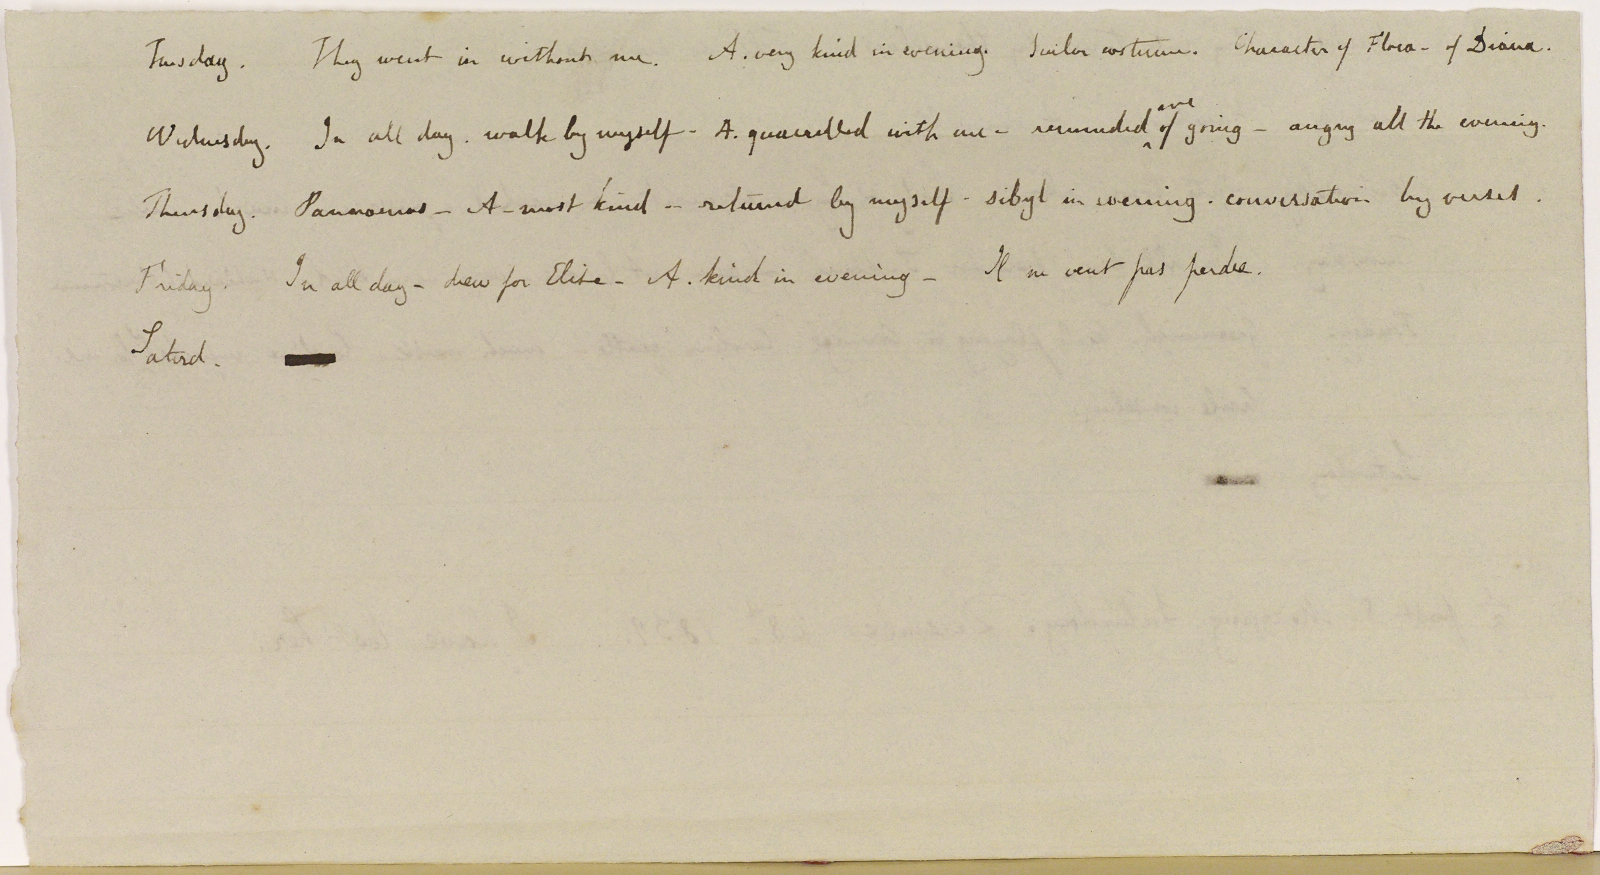 Tuesday. They went in without me. A. very kind in evening. Sailor costume. Character of Flora - of Diana.
Wednesday. In all day. walk by myself - A. quarrelled with me - reminded me of going - angry all the evening.
Thursday. Panoramas - A - most kind - returned by myself - sibyl in evening. conversation by verses.
Friday. In all day - drew for Elise - A. kind in evening - Il ne veut pas perdre.
Saturd.